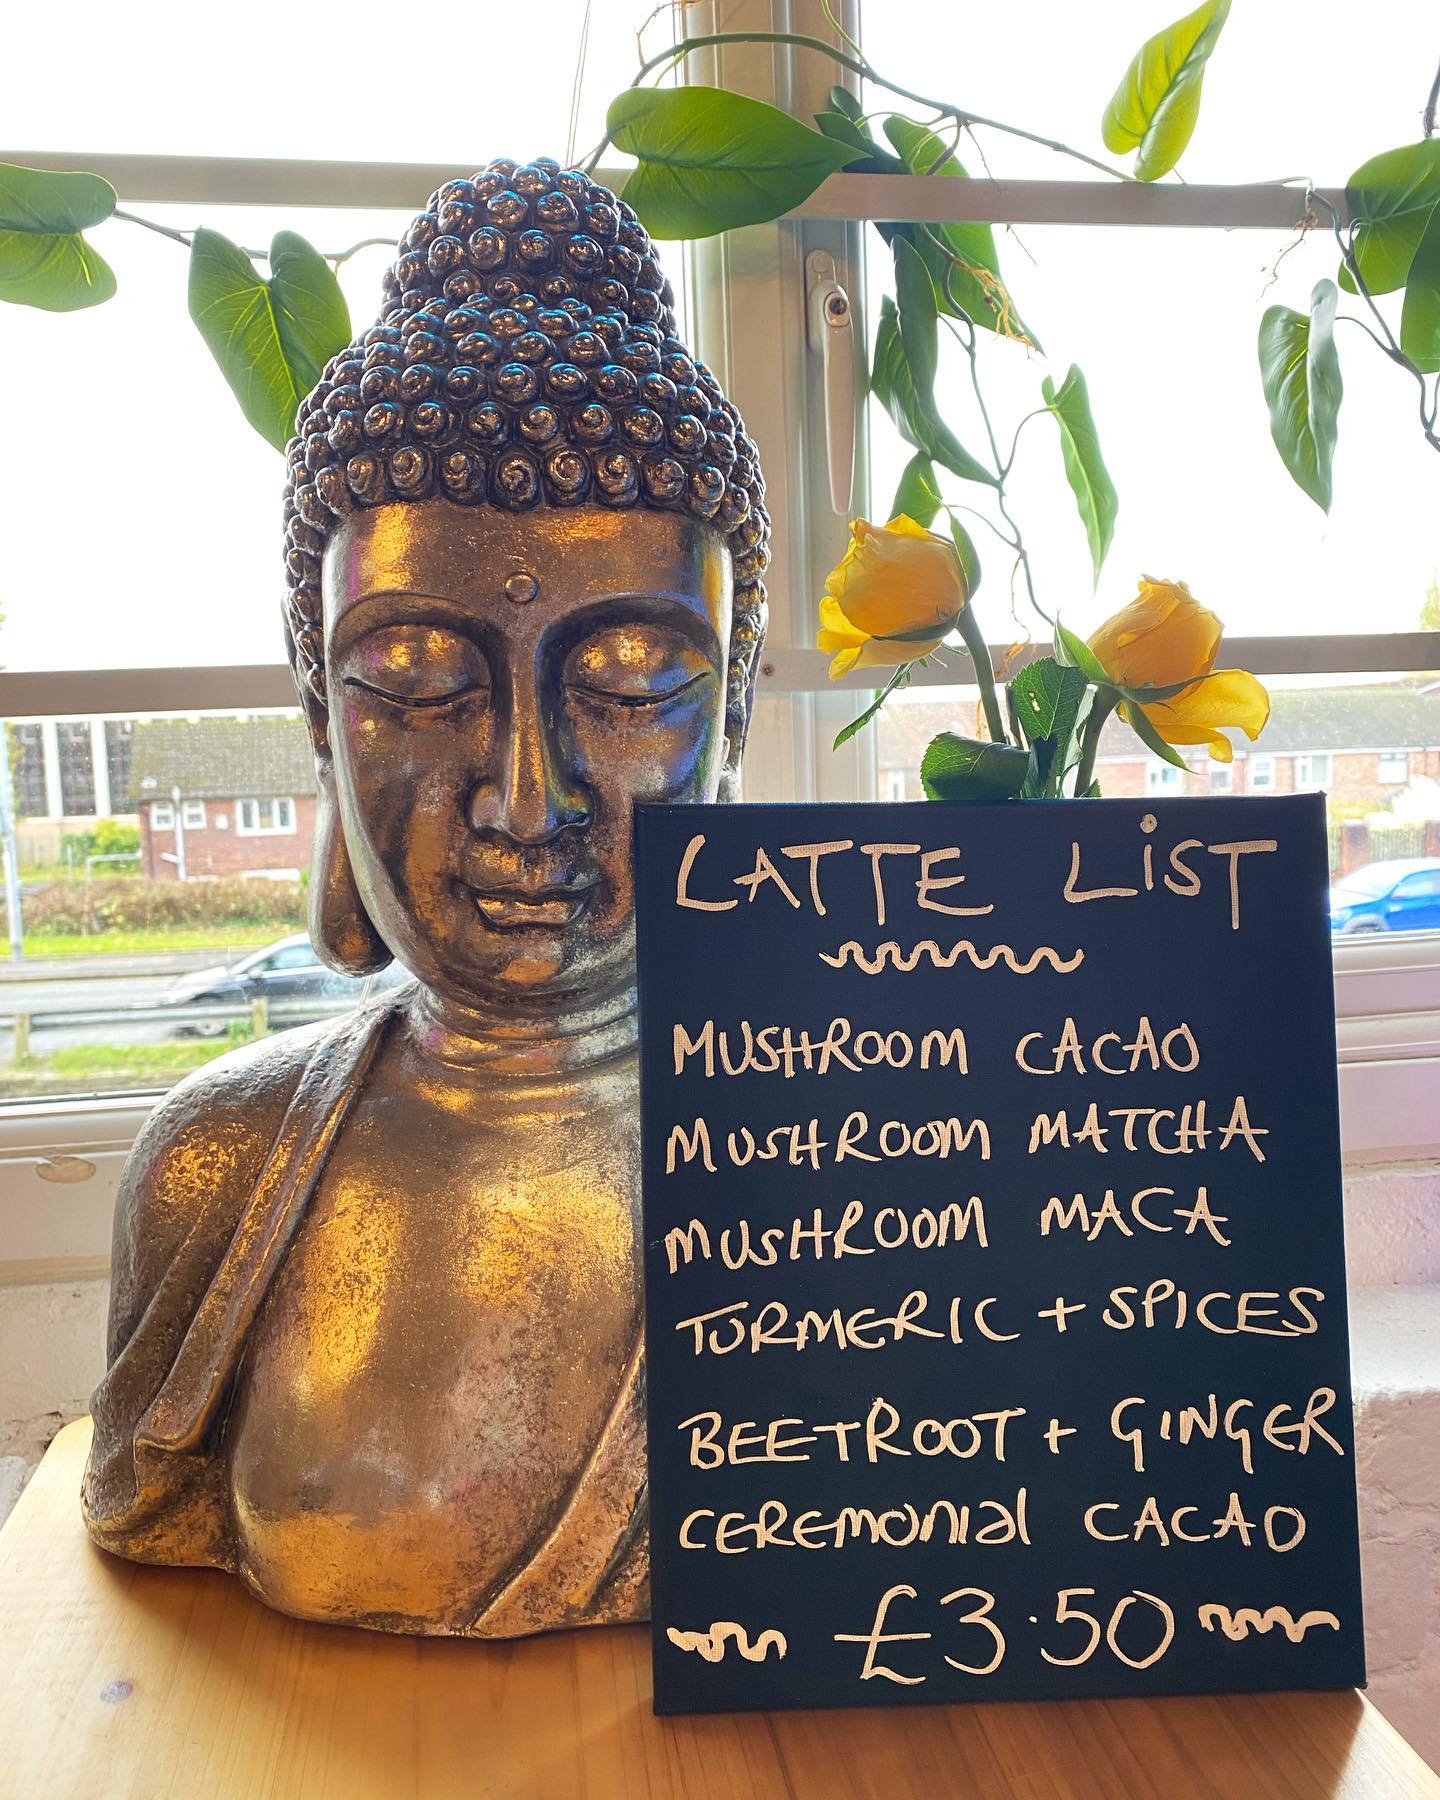 LATTE LiST
MUSHROOM CACAO
MUSHROOM MATCHA
MUSHROOM MACA
TURMERIC + SPICES
BEETROOT + GINGER
CEREMONIAL CACAO
£3.50